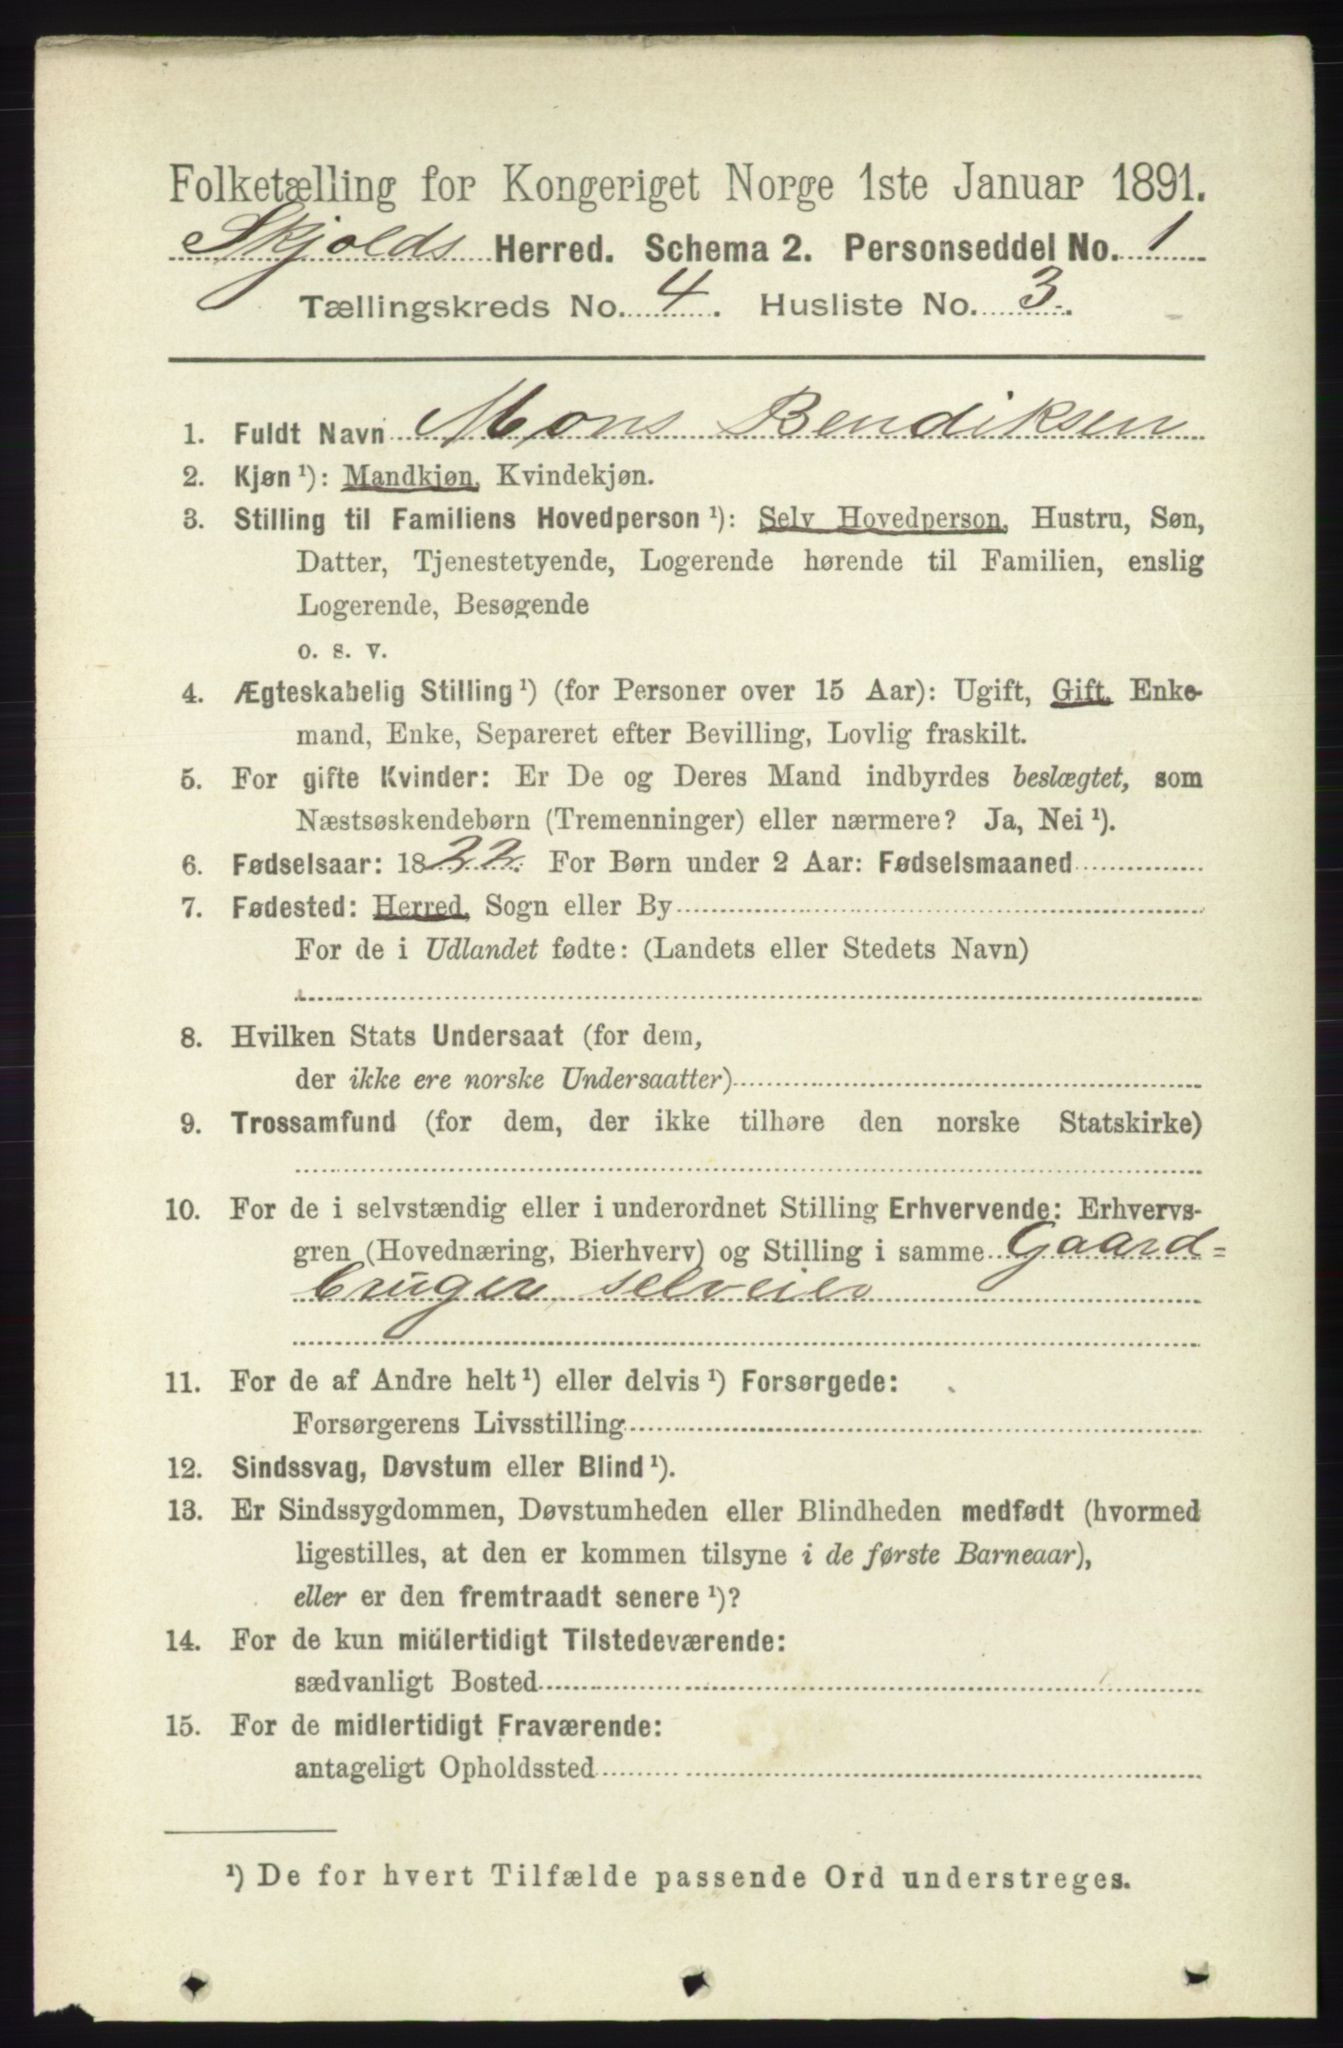 Folketælling for Kongeriget Norge 1ste Januar 1891.
Skjolds Herred. Schema 2. Personseddel No. 1
Tællingskreds No. 4. Husliste No. 3.
1. Fuldt Navn Mons Bendiksen
2. Kjøn ¹): Mandkjøn, Kvindekjøn.
3. Stilling til Familiens Hovedperson ¹): Selv Hovedperson, Hustru, Søn,
Datter, Tjenestetyende, Logerende hørende til Familien, enslig
Logerende, Besøgende
o. s. v.
4. Ægteskabelig Stilling ¹) (for Personer over 15 Aar): Ugift, Gift, Enke-
mand, Enke, Separeret efter Bevilling, Lovlig fraskilt.
5. For gifte Kvinder: Er De og Deres Mand indbyrdes beslægtet, som
Næstsøskendebørn (Tremenninger) eller nærmere? Ja, Nei ¹).
6. Fødselsaar: 1822. For Børn under 2 Aar: Fødselsmaaned
7. Fødested: Herred, Sogn eller By
For de i Udlandet fødte: (Landets eller Stedets Navn)
8. Hvilken Stats Undersaat (for dem,
der ikke ere norske Undersaatter)
9. Trossamfund (for dem, der ikke tilhøre den norske Statskirke)
10. For de i selvstændig eller i underordnet Stilling Erhvervende: Erhvervs-
gren (Hovednæring, Bierhverv) og Stilling i samme Gaard-
bruger, selveier
11. For de af Andre helt ¹) eller delvis ¹) Forsørgede:
Forsørgerens Livsstilling
12. Sindssvag, Døvstum eller Blind ¹).
13. Er Sindssygdommen, Døvstumheden eller Blindheden medfødt (hvormed
ligestilles, at den er kommen tilsyne i de første Barneaar),
eller er den fremtraadt senere ¹)?
14. For de kun midlertidigt Tilstedeværende:
sædvanligt Bosted
15. For de midlertidigt Fraværende:
antageligt Opholdssted
¹) De for hvert Tilfælde passende Ord understreges.